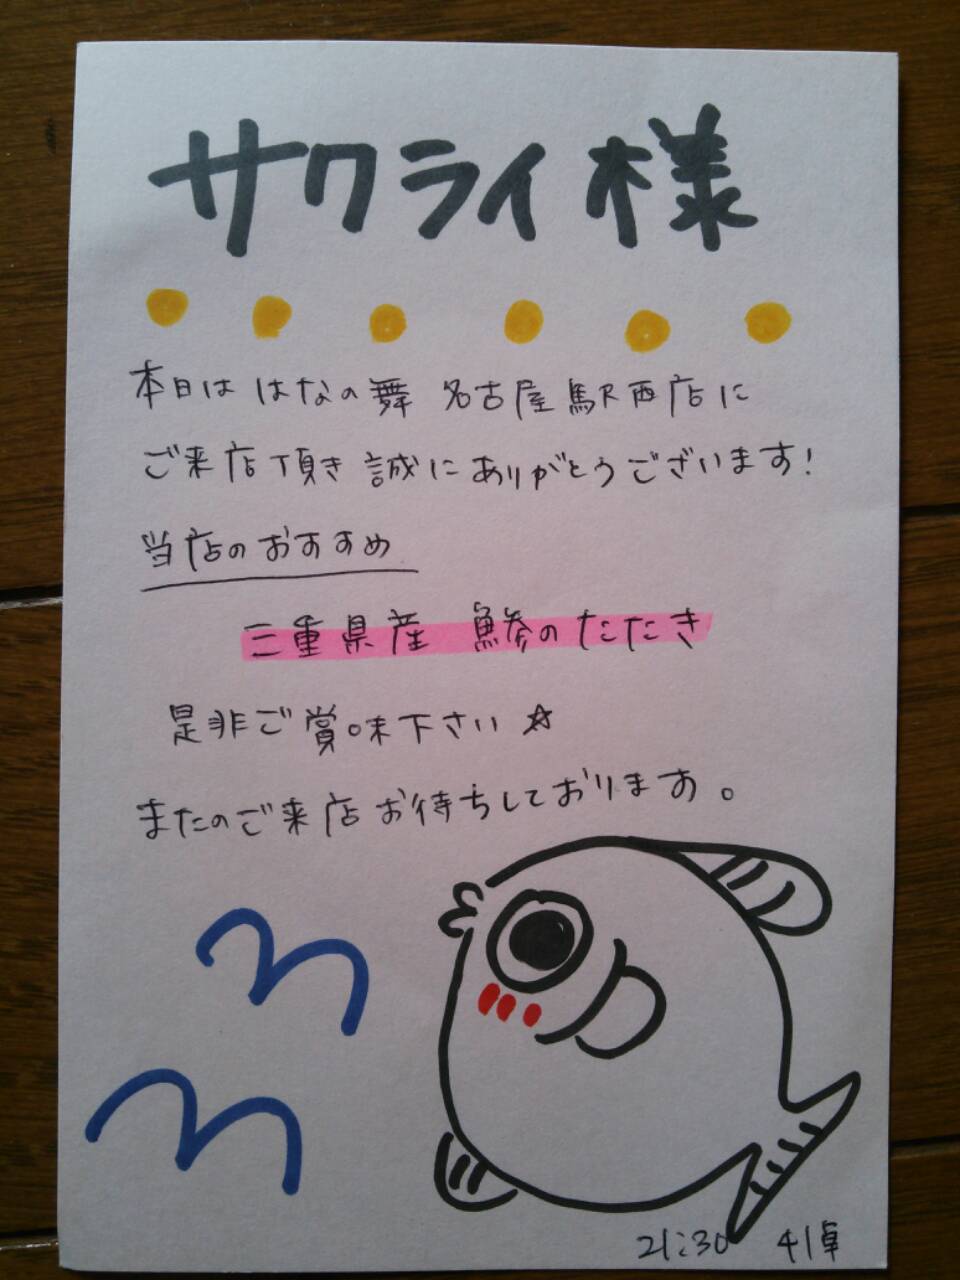 サクライ様
本日は はなの舞 名古屋駅西店に
ご来店頂き 誠にありがとうございます!
当店のおすすめ
三重県産 鯵のたたき
是非ご賞味下さい☆
またのご来店お待ちしております。
21:30 41卓